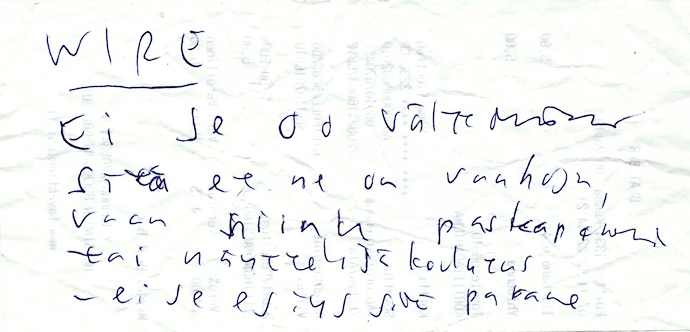 WIRE
Ei se oo välttämään
sitä et ne on vanhoja,
vaan niinku paskapäwii
tai näyttelijäkoulutus
- ei se esiys siitä parane